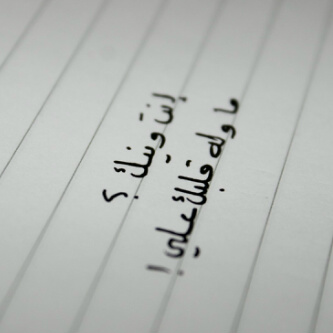 ما وله قلبك علي !
إنت وينك ؟